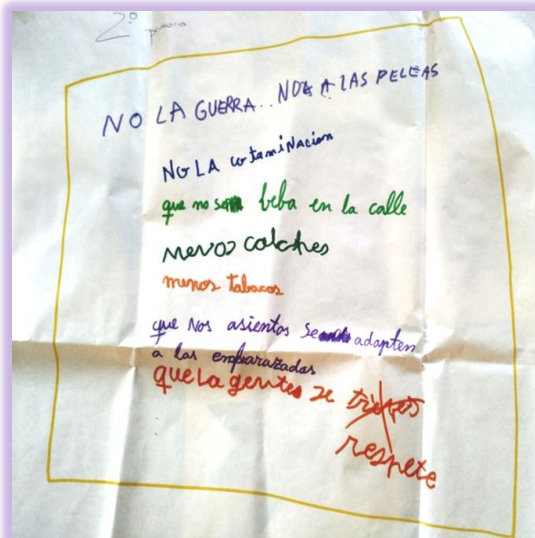 2º primaria
NO LA GUERRA.. NO A LAS PELEAS
NO LA cotamiNacion
que no se beba en la calle
menos colches
menos tabacos
que Nos asientos se adapten
a las embarazadas
que La gentes se
respete